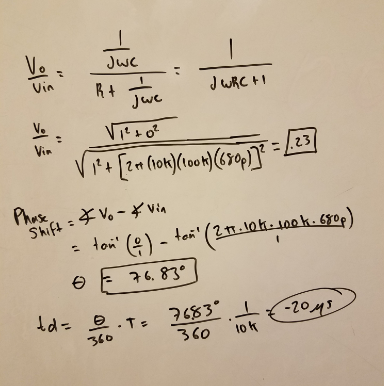 Vo/Vin = (1/jωC) / (R + 1/jωC) = 1 / (jωRC + 1)
Vo/Vin = √(1² + 0²) / √(1² + [2π(10k)(100k)(680p)]²) = .23
Phase Shift = ∡ Vo - ∡ Vin
= tan⁻¹(0/1) - tan⁻¹(2π·10k·100k·680p / 1)
θ = 76.83°
td = θ/360 · T = 7683°/360 · 1/10k = -20 µs